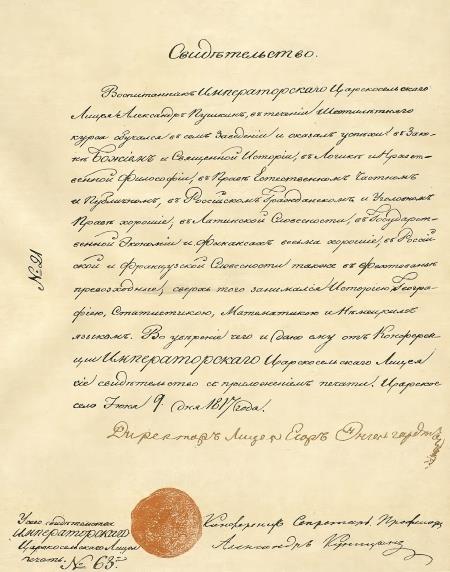 Свидѣтельство.
Воспитанникъ Императорскаго Царскосельскаго
Лицея Александръ Пушкинъ, въ теченіи Шестилѣтняго
курса обучался въ семъ Заведеніи и оказалъ успѣхи: въ Зако-
нѣ Божіемъ и Священной Исторіи, въ Логикѣ и Нравст-
венной Философіи, въ Правѣ Естественномъ Частномъ
и Публичномъ, въ Россійскомъ Гражданскомъ и Уголовномъ
Правѣ хорошіе; въ Латинской Словесности, въ Государст-
венной Экономіи и Финансахъ весьма хорошіе; въ Россій-
ской и Французской Словесности также въ Фехтованьи
превосходные; сверхъ того занимался Исторіею, Геогра-
фіею, Статистикою, Математикою и Нѣмецкимъ
языкомъ. Во увѣреніе чего и дано ему отъ Конферен-
ціи Императорскаго Царскосельскаго Лицея
сіе свидѣтельство съ приложеніемъ печати. Царское
село Іюня 9. дня 1817 года.
Директоръ Лицея Егоръ Энгельгардтъ
№ 21
У сего свидѣтельства
Императорскаго
Царскосельскаго Лицея
печать.
№ 63.
Конференцъ Секретарь Профессоръ
Александръ Куницынъ